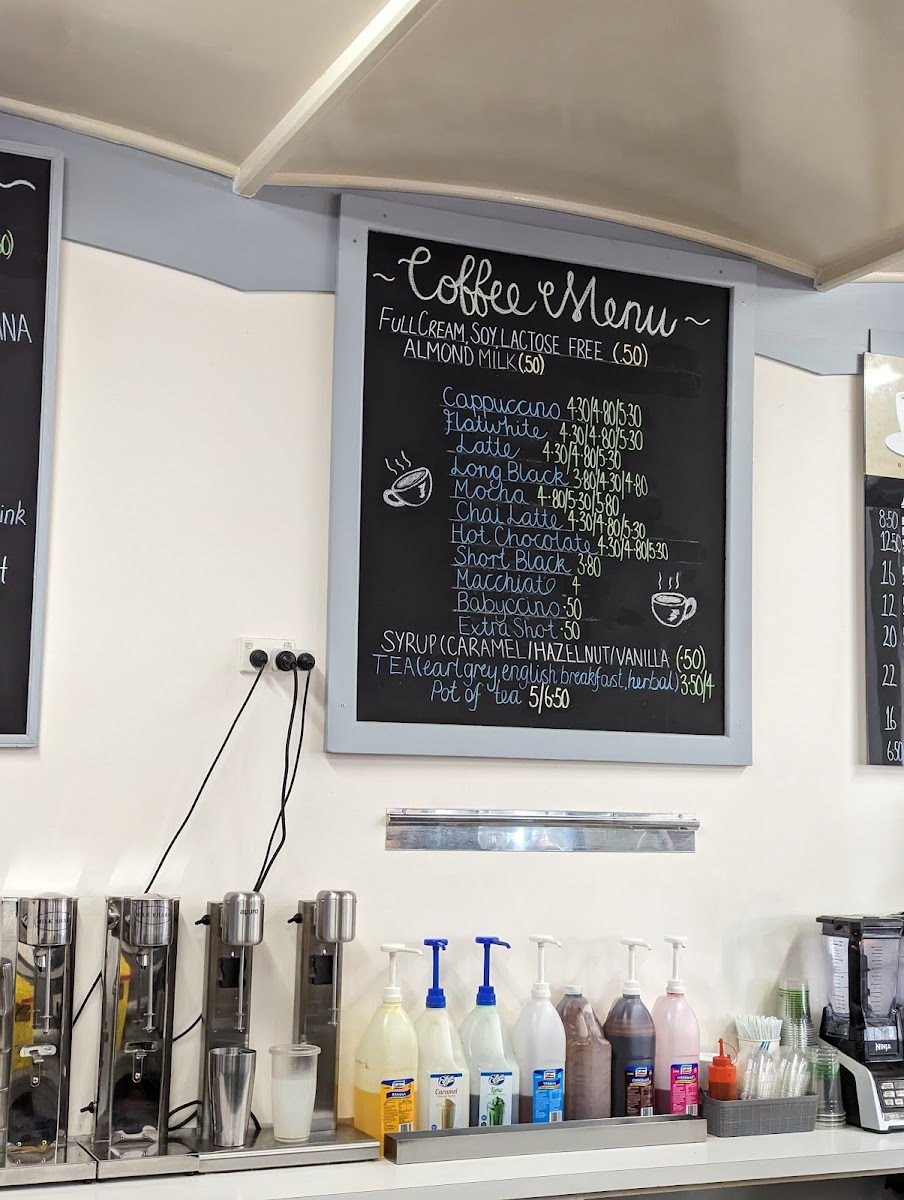 ~Coffee Menu~
FULLCREAM, SOY, LACTOSE FREE (.50)
ALMOND MILK (.50)
Cappuccino 4·30/4·80/5·30
Flatwhite 4·30/4·80/5·30
Latte 4·30/4·80/5·30
Long Black 3·80/4·30/4·80
Mocha 4·80/5·30/5·80
Chai Latte 4·30/4·80/5·30
Hot Chocolate 4·30/4·80/5·30
Short Black 3·80
Macchiato 4
Babyccino ·50
Extra Shot ·50
SYRUP (CARAMEL/HAZELNUT/VANILLA (·50)
TEA (earl grey, english breakfast, herbal) 3·50/4
Pot of tea 5/6·50
ANA
ink
8·50
12·50
16
12
20
22
16
6·50
MILK SHAKE
MILK SHAKE
apuro
BANANA
Caramel
Lime
VANILLA
CHOCOLATE
STRAWBERRY
NINJA